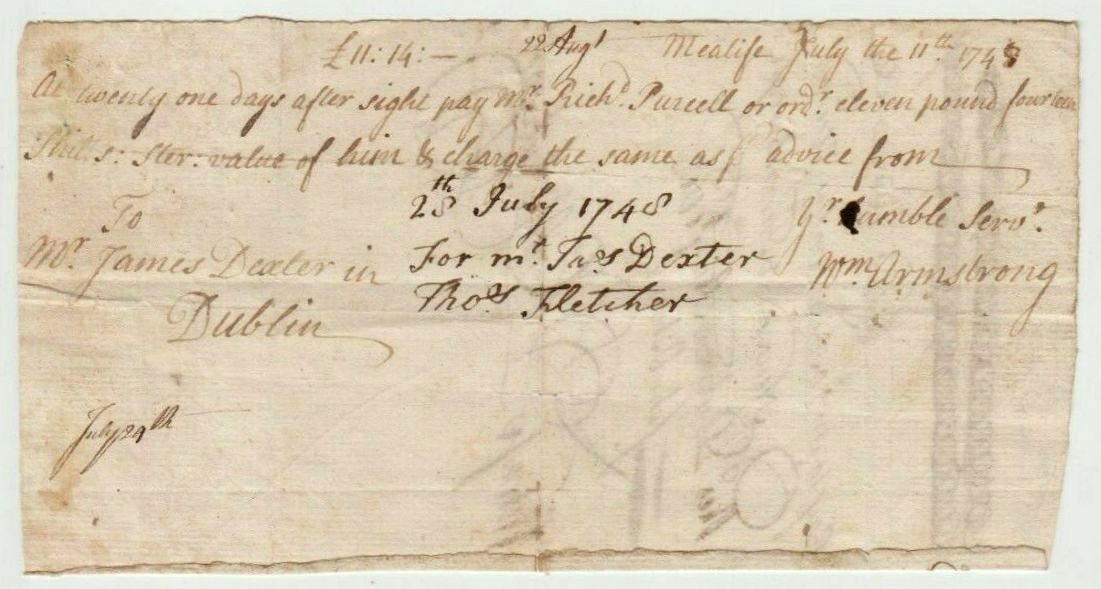 £11: 14: — 22 Augt Mealife July the 11th 1748
At twenty one days after sight pay Mr. Richd. Purcell or ordr. eleven pound fourteen
Shils: Ster: value of him & charge the same as pr advice from
To 28th July 1748 Yr. humble Servt.
Mr. James Dexter in For mr. Jas Dexter Wm Armstrong
Dublin Thos. Fletcher
July 29th